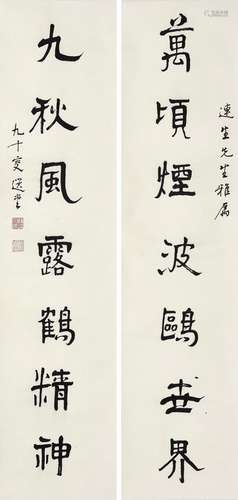 連生先生雅屬
萬頃煙波鷗世界
九秋風露鶴精神
九十叟選堂